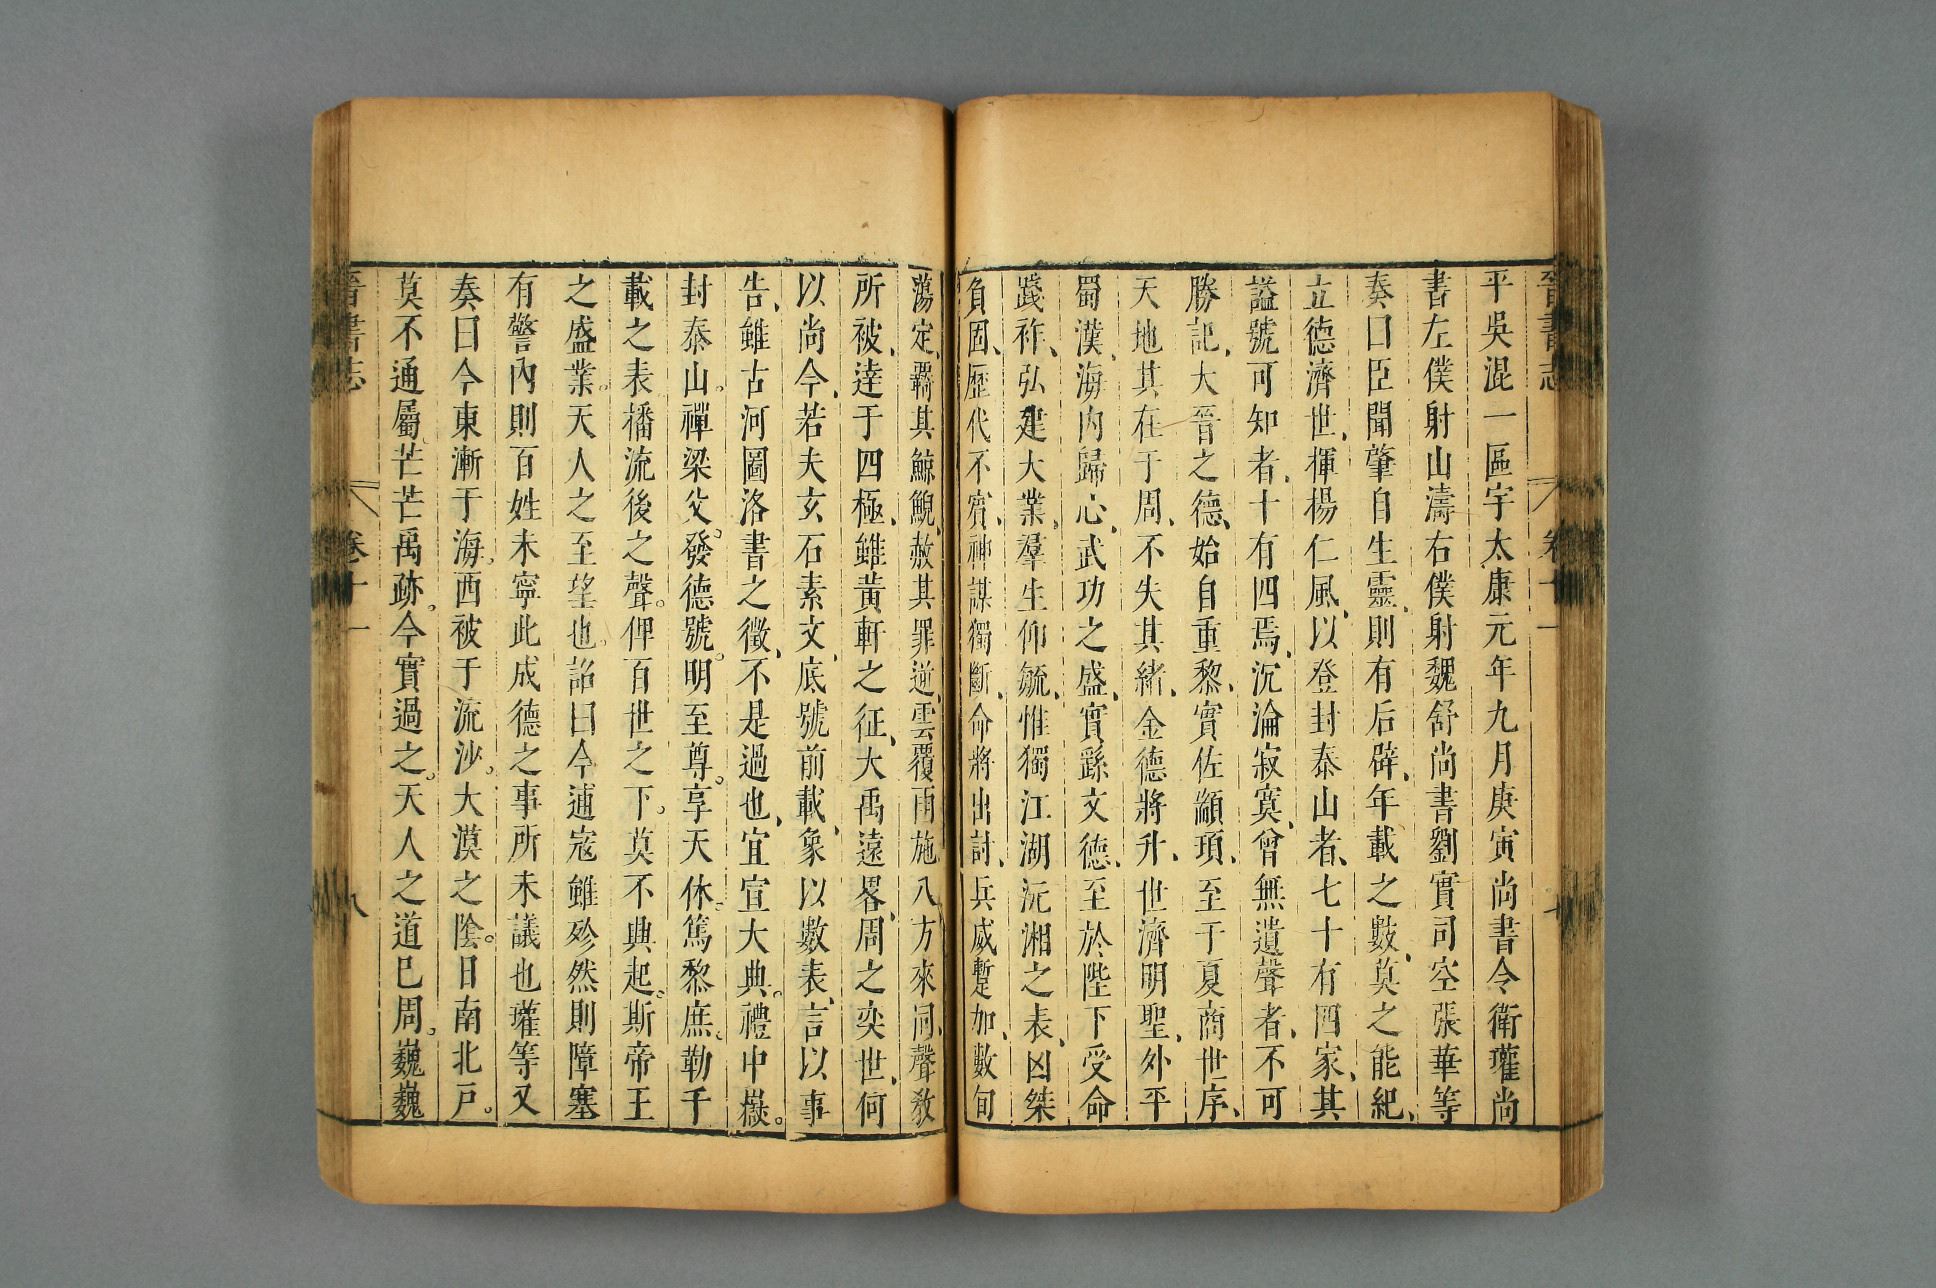 晉書志 卷十一
平吳混一區宇太康元年九月庚寅尚書令衛瓘尚
書左僕射山濤右僕射魏舒尚書劉實司空張華等
奏曰臣聞肇自生靈則有后辟年載之數莫之能紀
立德濟世揮揚仁風以登封泰山者七十有四家其
謚號可知者十有四焉沉淪寂寞曾無遺聲者不可
勝記大晉之德始自重黎實佐顓頊至于夏商世序
天地其在于周不失其緒金德將升世濟明聖外平
蜀漢海內歸心武功之盛實繇文德至於陛下受命
踐祚弘建大業羣生仰毓惟獨江湖沅湘之表凶桀
負固歷代不賓神謀獨斷命將出討兵威蹔加數旬
蕩定羈其鯨鯢赦其罪逆雲覆雨施八方來同聲教
所被達于四極雖黃軒之征大禹遠畧周之奕世何
以尚今若夫玄石素文底號前載象以數表言以事
告雖古河圖洛書之徵不是過也宜宣大典禮中嶽。
封泰山。禪梁父。發德號。明至尊。享天休。篤黎庶。勒千
載之表播流後之聲。俾百世之下。莫不典起。斯帝王
之盛業。天人之至望也。詔曰今逋寇雖殄然則障塞
有警內則百姓未寧此成德之事所未議也瓘等又
奏曰今東漸于海。西被于流沙。大漠之陰。日南北戸。
莫不通屬。芒芒禹跡。今實過之。天人之道已周。巍巍
晉書志 卷十一 八